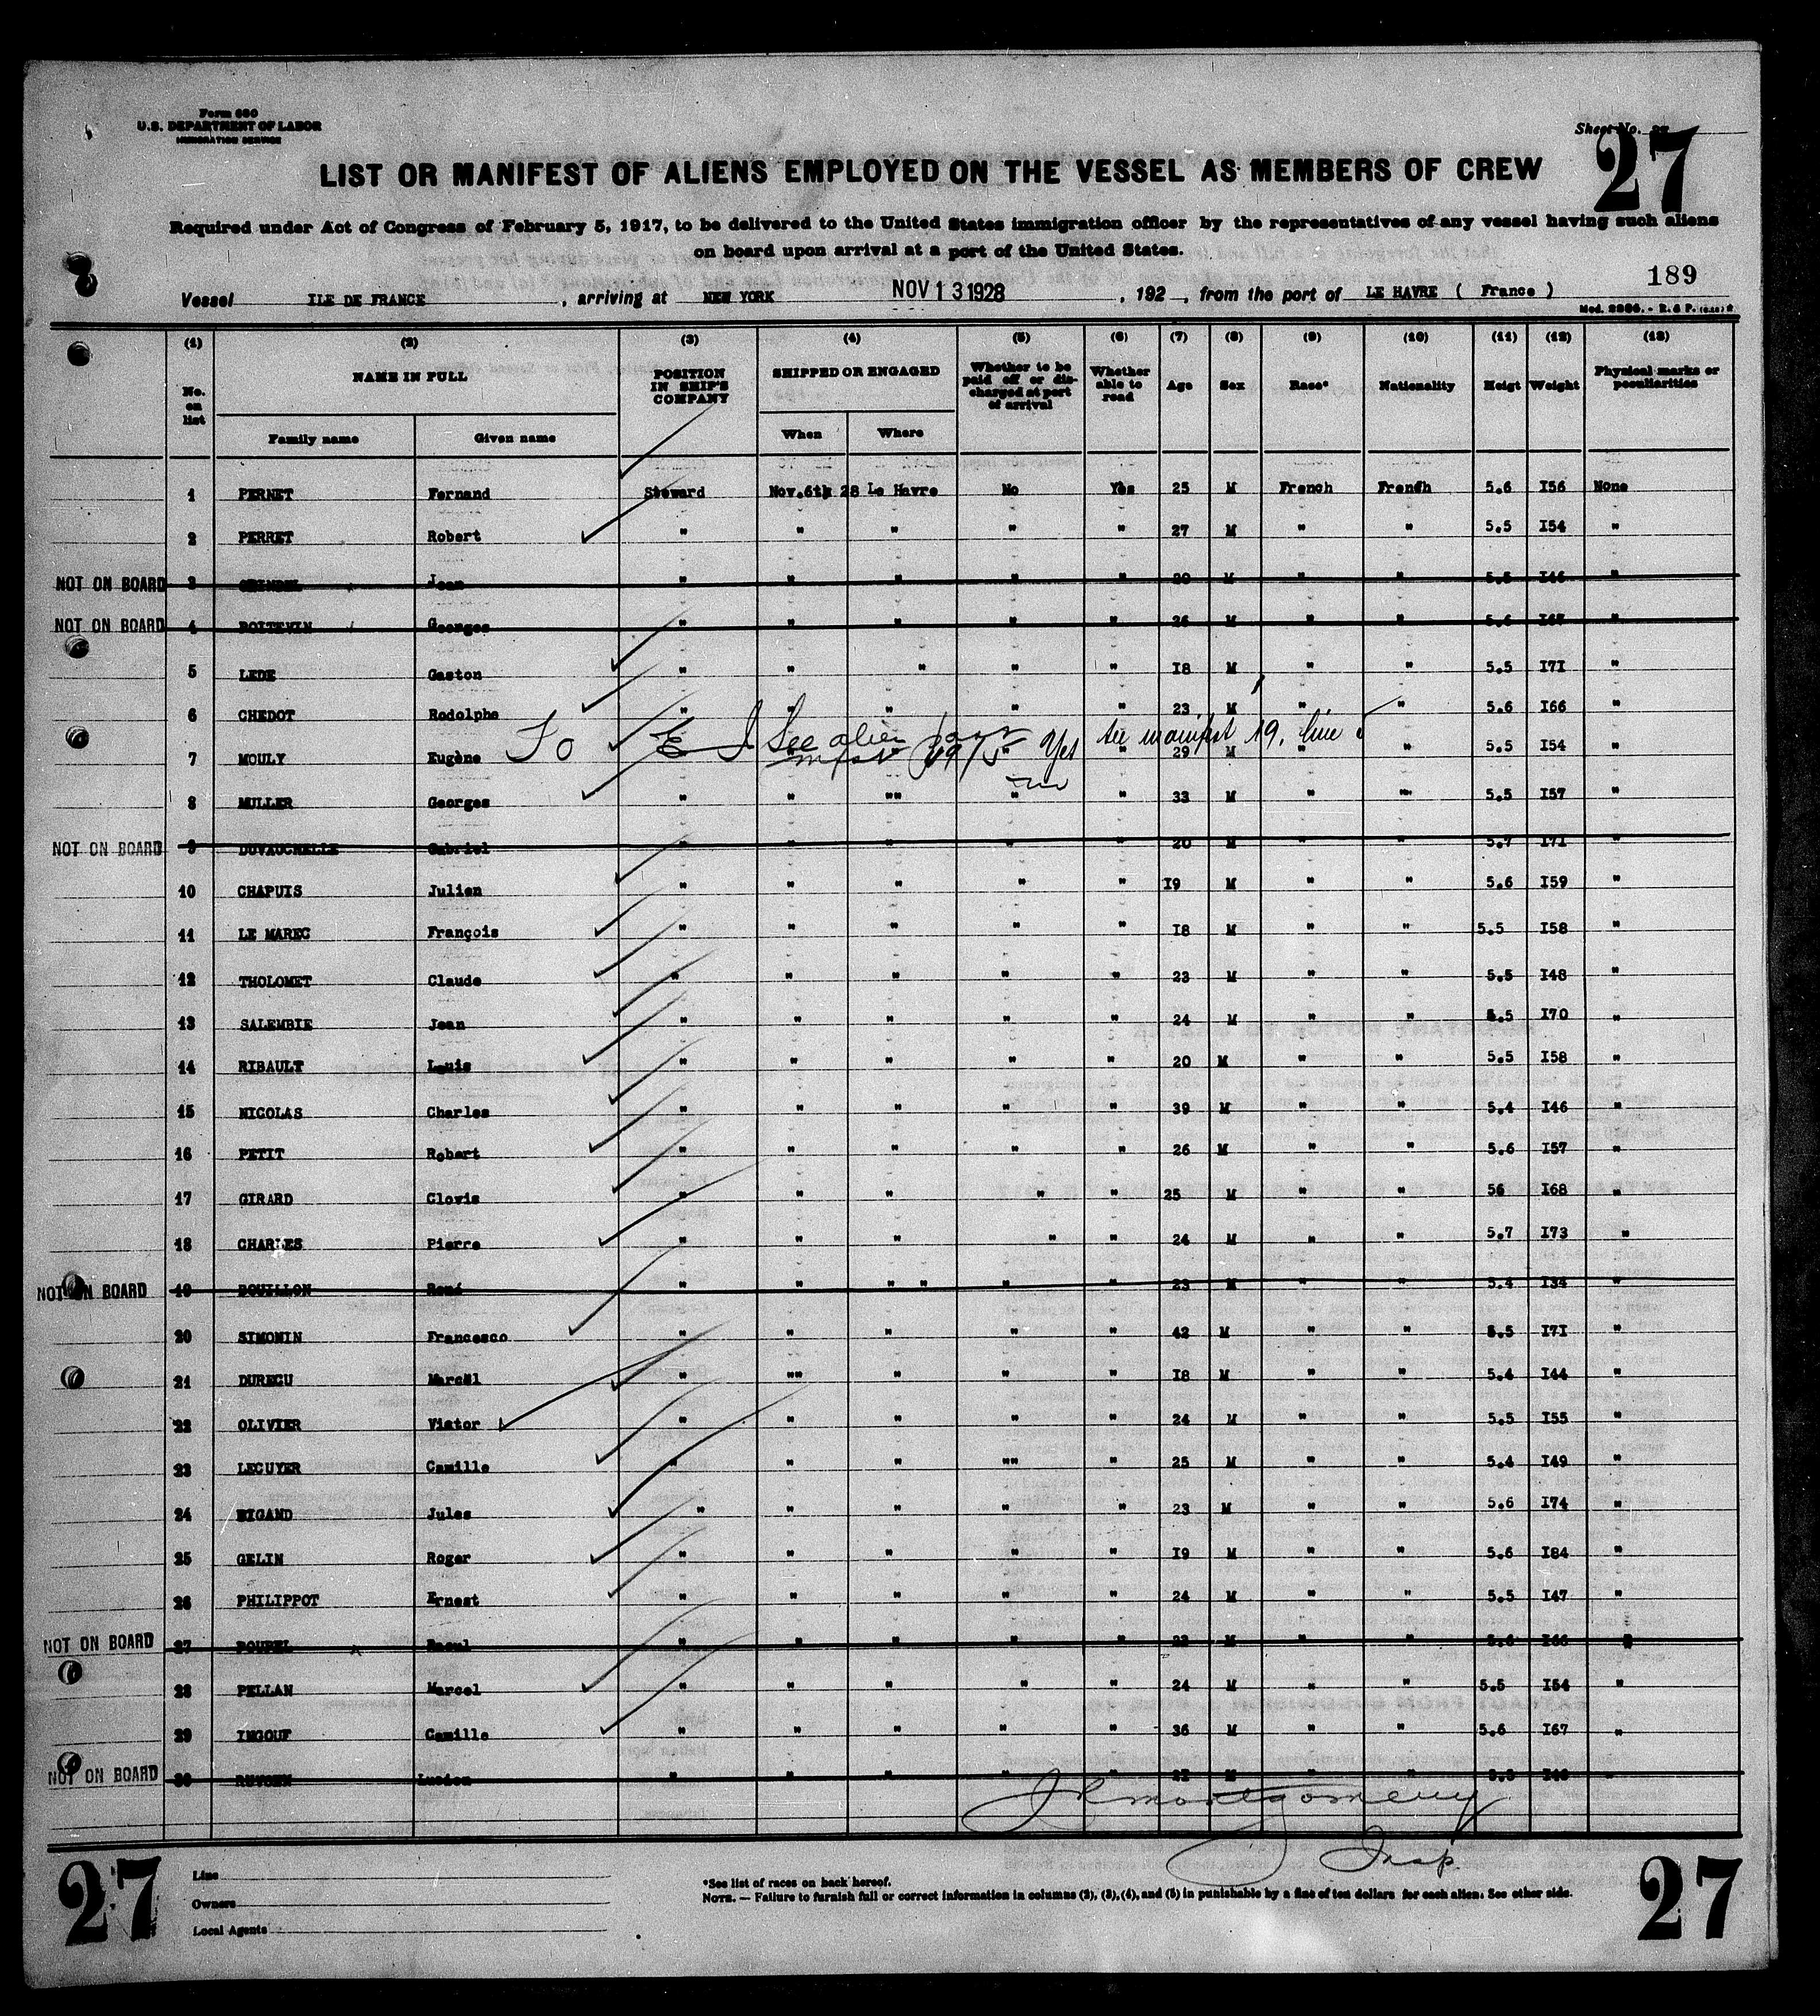 Form 680
U.S. DEPARTMENT OF LABOR
IMMIGRATION SERVICE
Sheet No. 27
27
LIST OR MANIFEST OF ALIENS EMPLOYED ON THE VESSEL AS MEMBERS OF CREW
Required under Act of Congress of February 5, 1917, to be delivered to the United States immigration officer by the representatives of any vessel having such aliens
on board upon arrival at a port of the United States.
189
Vessel ILE DE FRANCE, arriving at NEW YORK NOV 13 1928, 192 , from the port of LE HAVRE ( France )
(1) (2) (3) (4) (5) (6) (7) (8) (9) (10) (11) (12) (13)
No. on list NAME IN FULL Family name Given name POSITION IN SHIP'S COMPANY SHIPPED OR ENGAGED When Where Whether to be paid off or discharged at port of arrival Whether able to read Age Sex Race* Nationality Heigt Weight Physical marks or peculiarities
1 PERNET Fernand Steward Nov.6th 28 Le Havre No Yes 25 M French French 5.6 I56 None
2 PERRET Robert " " " " " 27 M " " 5.5 I54 "
NOT ON BOARD 3 Jean " " " " " M " " 5.5 I46 "
NOT ON BOARD 4 POITEVIN Georges " " " " " 26 M " " 5.6 I67 "
5 LEDE Gaston " " " " " I8 M " " 5.5 I7I "
6 CHEDOT Rodolphe " " " " " 23 M " " 5.6 I66 "
To E I See alien page 19/5 Yes See manifest 19, line 5
7 MOULY Eugène 29 5.5 I54 "
8 MULLER Georges " " "" " " 33 M " "" 5.5 I57 "
NOT ON BOARD 9 DUVAUCHELLE Gabriel " " " " " 20 M " " 5.7 I7I "
10 CHAPUIS Julien " " " " " I9 M " " 5.6 I59 "
11 LE MAREC François " " " " " I8 M " " 5.5 I58 "
12 THOLOMET Claude " " " " " 23 M " " 5.5 I48 "
13 SALEMBIE Jean " " " " " 24 M " " 5.5 I70 "
14 RIBAULT Louis " " " " " 20 M " " 5.5 I58 "
15 NICOLAS Charles " " " " " 39 M " " 5.4 I46 "
16 PETIT Robert " " " " " 26 M " " 5.6 I57 "
17 GIRARD Clovis " " " " " 25 M " " 56 I68 "
18 CHARLES Pierre " " " " 24 M " " 5.7 I73 "
NOT ON BOARD 19 BOUILLON René " " " " " " 23 M " " 5.4 I34 "
20 SIMONIN Francesco " " " " " 42 M " " 5.5 I7I "
21 DURECU Marcel " "" " " " I8 M " " 5.4 I44 "
22 OLIVIER Viator " " " " " 24 M " " 5.5 I55 "
23 LECUYER Camille " " " "" " 25 M " " 5.4 I49 "
24 BIGAND Jules " " " " " 23 M " " 5.6 I74 "
25 GELIN Roger " " " " " I9 M " " 5.6 I84 "
26 PHILIPPOT Ernest " " " " " 24 M " " 5.5 I47 "
NOT ON BOARD 27 POUPEL Raoul " " " " " M " " "
28 PELLAN Marcel " " " " " 24 M " " 5.5 I54 "
29 INGOUF Camille " " " " " 36 M " " 5.6 I67 "
NOT ON BOARD 30 Lucien " " " " " M " " "
JR Montgomery
Insp.
27
27
Line
Owners
Local Agents
*See list of races on back hereof.
NOTE. — Failure to furnish full or correct information in columns (2), (3), (4), and (5) in punishable by a fine of ten dollars for each alien. See other side.